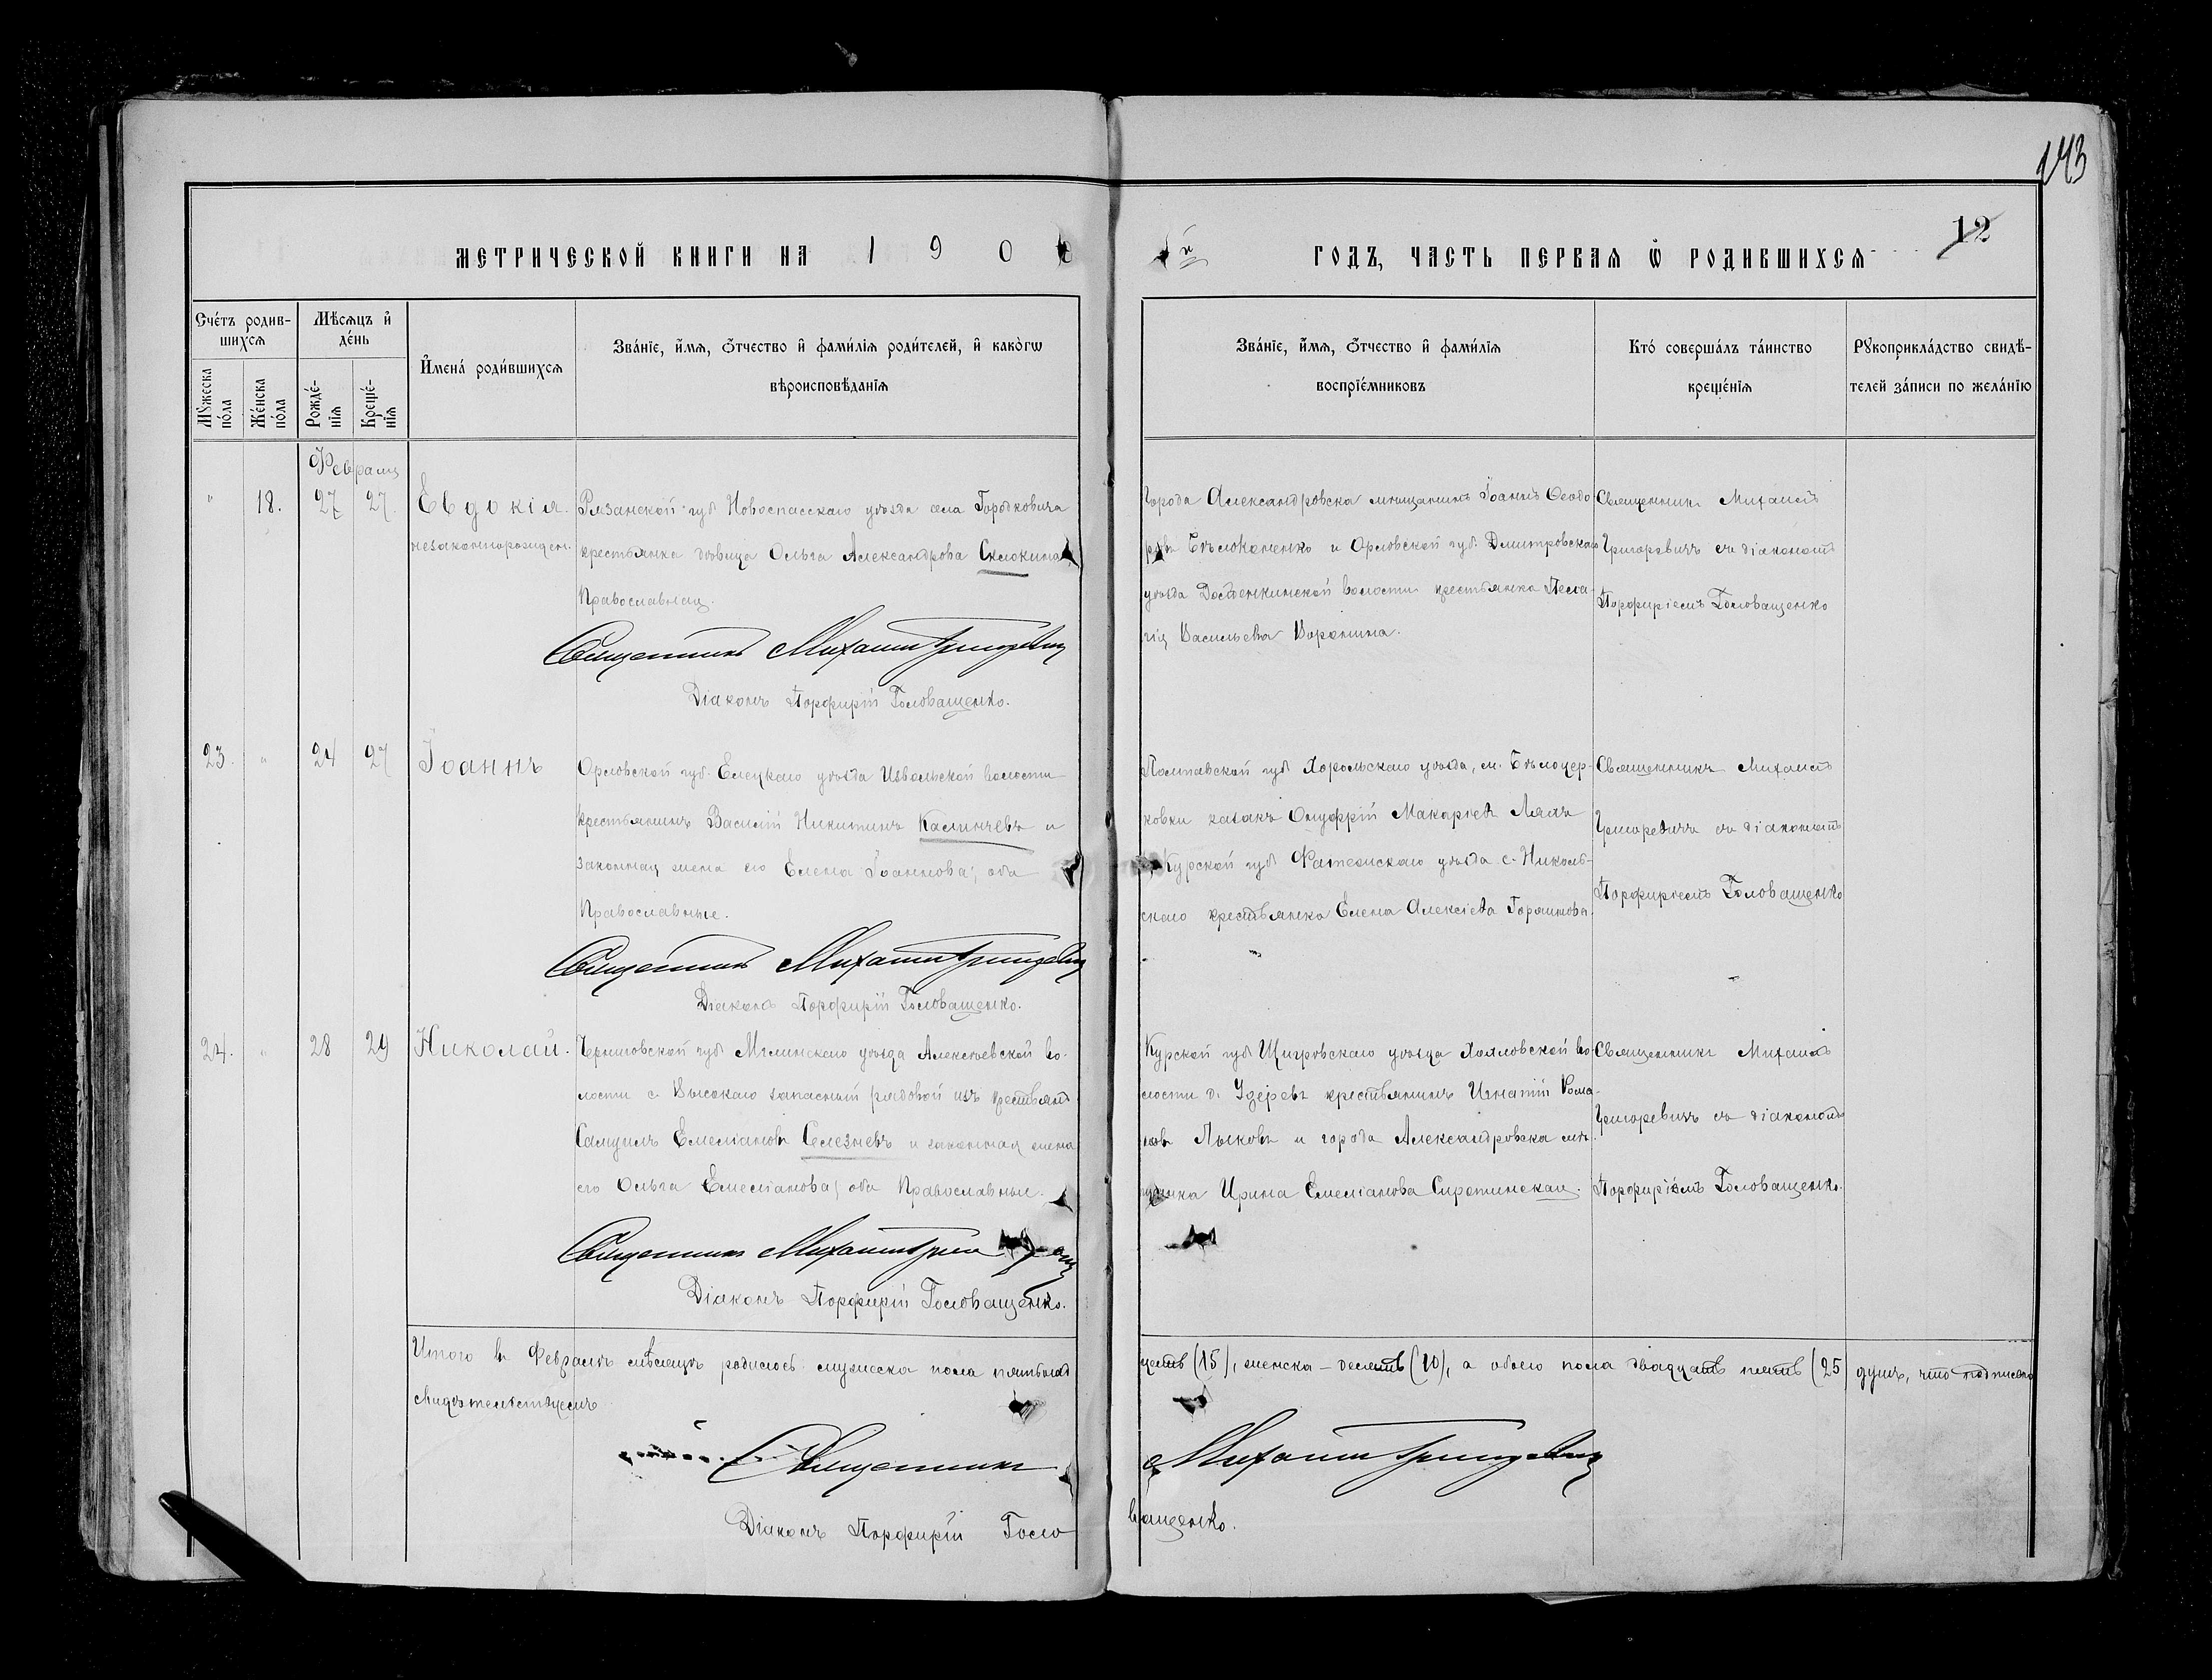 143
12
МЕТРИЧЕСКОЙ КНИГИ НА 1 9 0 й ГОДЪ, ЧАСТЬ ПЕРВАЯ Ѿ РОДИВШИХСЯ
Сче́тъ родив-
шихсѧ
Мѣсѧцъ и҆
де́нь
И҆мена̀ роди́вшихсѧ
Зва́нїе, и҆́мѧ, ѻ҆́тчество и҆ фами́лїѧ роди́телей, и҆ како́гѡ
вѣроисповѣ́данїѧ
Зва́нїе, и҆́мѧ, ѻ҆́тчество и҆ фами́лїѧ
воспрїе́мниковъ
Кто́ соверша́лъ та́инство
креще́нїѧ
Рꙋкоприкла́дство свидѣ́-
телей за́писи по жела́нїю
Мꙋ́жеска
по́ла
Же́нска
по́ла
Рожде́-
нїѧ
Креще́-
нїѧ
Февраля
" 18. 27 27. Евдокія.
незаконнорожден.
Рязанской губ Новоспасскаго уѣзда села Городковича
крестьянка дѣвица Ольга Александрова Склокина
Православная.
Священникъ Михаилъ Григоревич
Діаконъ Порфирій Головащенко.
Города Александровска мѣщанинъ Іоаннъ Ѳеодо
ровъ Бѣлоконенко и Орловской губ. Дмитровскаго
уѣзда крестьянка Пела-
гія Васильева Воронина.
Священникъ Михаилъ
Григоревичъ съ діакономъ
Порфиріемъ Головащенко
23. " 24 27 Іоаннъ
Орловской губ. Елецкаго уѣзда Извольской волости
крестьянинъ Василій Никитинъ Калинчевъ и
законная жена его Елена Іоаннова, оба
Православные.
Священникъ Михаилъ Григоревич
Діаконъ Порфирій Головащенко.
Полтавской губ Хорольскаго уѣзда, м. Бѣлоцер-
ковки казакъ Онуфрій Макаріевъ Лялъ
Курской губ Фатежскаго уѣзда с. Николь-
скаго крестьянка Елена Алексіева Горяинова.
Священникъ Михаилъ
Григоревичъ съ діакономъ
Порфиріемъ Головащенко
24. " 28 29 Николай.
Черниговской губ Мглинскаго уѣзда Алексѣевской во-
лости с Высокаго запасный рядовой изъ крестьянъ
Самуилъ Емеліановъ Селезневъ и законная жена
его Ольга Емеліанова, оба Православные.
Священникъ Михаилъ Григоревич
Діаконъ Порфирій Головащенко.
Курской губ Щигровскаго уѣзда Хохловской во-
лости д. Удерева крестьянинъ Игнатій Рома-
новъ Лыковъ и города Александровска мѣ-
щанка Ирина Емеліанова Сиротинская.
Священникъ Михаилъ
Григоревичъ съ діакономъ
Порфиріемъ Головащенко.
Итого въ Февралѣ мѣсяцѣ родилось мужеска пола пятьнад
цать (15), женска - десять (10), а обоего пола двадцать пять (25 душъ, что подписью
свидѣтельствуемъ
Священникъ Михаилъ Григоревич
Діаконъ Порфирій Голо
ващенко.